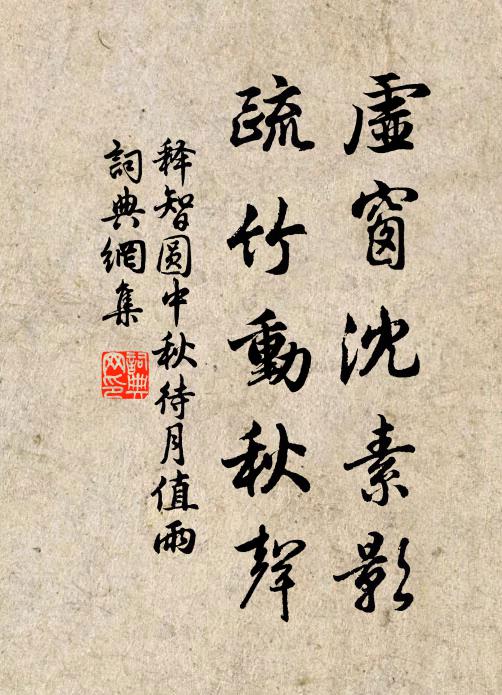 虛窗沈素影
疏竹動秋聲
释智圆中秋待月值雨
詞典網集
詞典网印